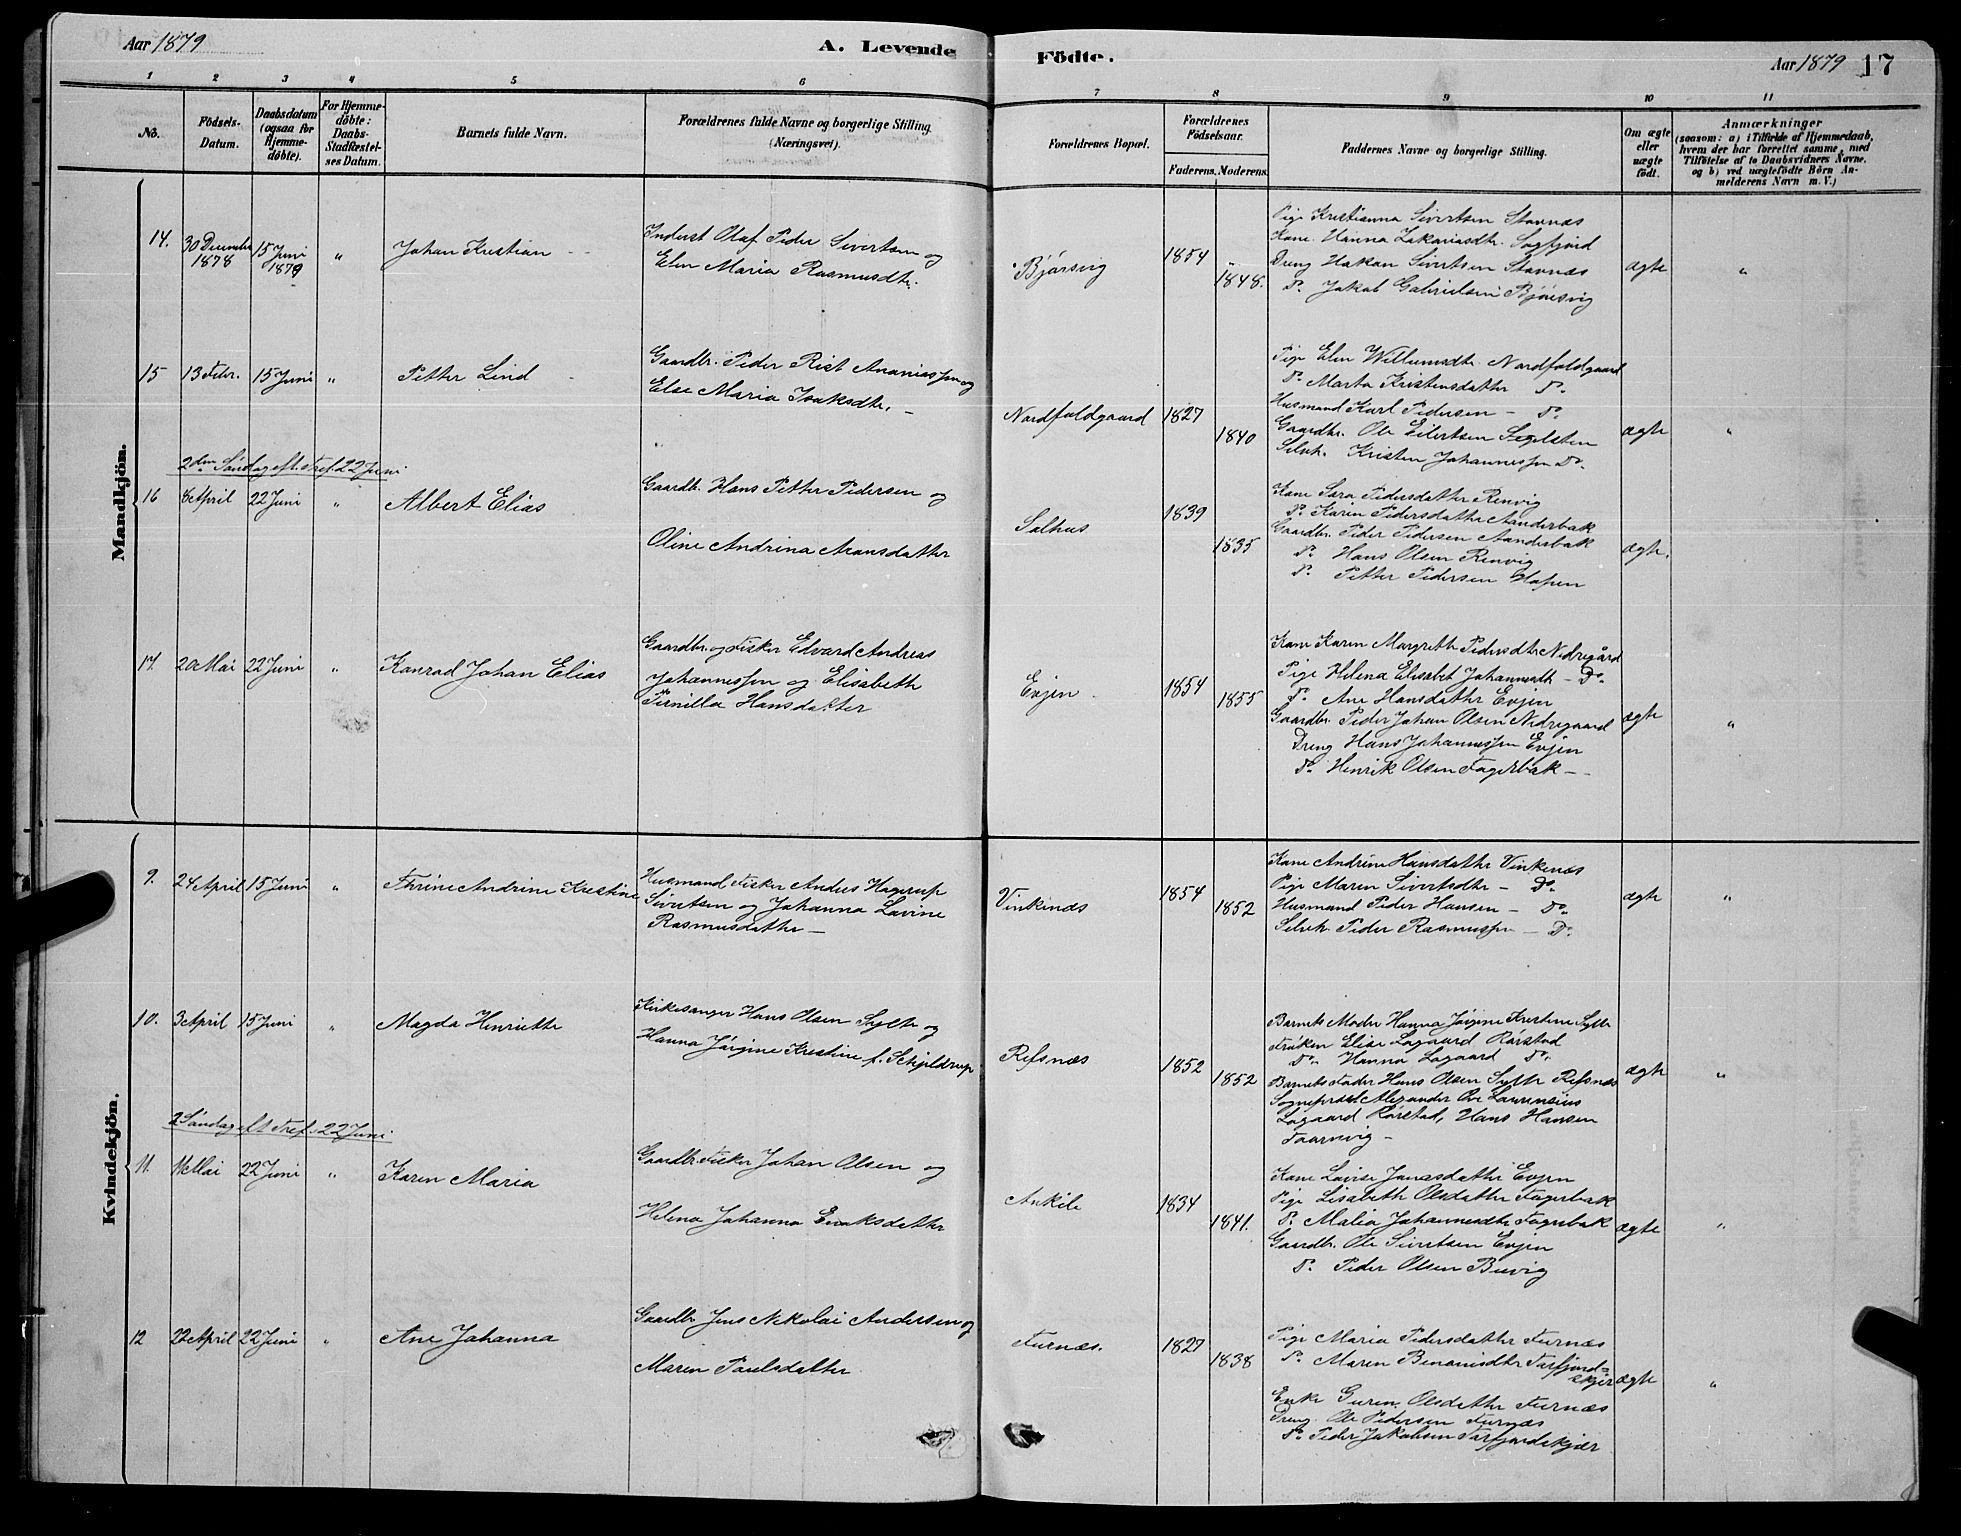 Aar 1879
A. Levende
Födte.
Aar 1879 17
1 2 3 4 5 6 7 8 9 10 11
No.
Födsels-
Datum.
Daabsdatum
(ogsaa for
Hjemme-
döbte).
For Hjemme-
döbte:
Daabs-
Stadfæstel-
ses Datum.
Barnets fulde Navn.
Forældrenes fulde Navne og borgerlige Stilling.
(Næringsvei).
Forældrenes Bopæl.
Forældrenes
Födselsaar.
Faderens. Moderens.
Faddernes Navne og borgerlige Stilling.
Om ægte
eller
uægte
födt.
Anmærkninger
(saasom: a) i Tilfælde af Hjemmedaab,
hvem der har forrettet samme, med
Tilföielse af to Daabsvidners Navne,
og b) ved uægtefödte Börn An-
melderens Navn m. V.)
Mandkjön.
14. 30 December 1878
15 Juni 1879
"
Johan Kristian
Inderst Olaf Peder Sivertsen og
Elen Maria Rasmusdtr.
Bjørsvig
1854
1848.
Pige Kristianna Sivertsen Stavnæs
Kone Hanna Zakariasdtr. Sagfjord
Dreng Hakan Sivertsen Stavnæs
Do. Jakob Gabrielsen Bjørsvig
ægte
"
15 13 Febr. 15 Juni "
Petter Lind
Gaardbr. Peder Rist Ananiassen og
Else Maria Isaksdtr.
Nordfoldgaard
1827
1840
Pige Elen Willumsdtr. Nordfoldgaard
Do. Marta Kristensdatter Do.
Husmand Karl Pedersen - Do.
Gaardbr. Ole Eilertsen Segelsten
Selvh. Kristen Johannessen Do.
ægte
"
2den Søndag eft. Tref. 22 Juni
16 8 April 22 Juni "
Albert Elias
Gaardbr. Hans Petter Pedersen og
Oline Andrina Aronsdatter
Salhus
1839
1835
Kone Sara Pedersdatter Renvig
Do. Karen Pedersdatter Aanderbak
Gaardbr. Peder Pedersen Aanderbak
Do. Hans Olsen Renvig
Do. Petter Pedersen
ægte.
17. 20 Mai 22 Juni "
Konrad Johan Elias
Gaardbr. og Fisker Edvard Andreas
Johannessen og Elisabeth
Pernilla Hansdatter
Evjen
1854
1855
Kone Karen Margrethe Pedersdtr. Nedregård
Pige Helena Elisabet Johannesdt. - Do.
Do. Ane Hansdatter Evjen
Gaardbr. Peder Johan Olsen Nedregaard
Dreng Hans Johannessen Evjen
Do. Henrik Olsen Fagerbak
ægte
"
Kvindekjön.
9. 24 April 15 Juni "
Thrine Andrine Kristine
Husmand Fisker Anders Hagerup
Sivertsen og Johanna Lavine
Rasmusdatter
Vinkenæs
1854
1852
Kone Andrine Hansdatter Vinkenæs
Pige Maren Sivertsdtr - Do.
Husmand Peder Hansen - Do.
Selvh. Peder Rasmussen - Do.
ægte
"
10. 3 April 15 Juni "
Magda Henriette
Kirkesanger Hans Olsen Sylte og
Hanna Jørgine Kristine f. Schjeldrup
Refsnæs
1852
1852
Barnets Moder Hanna Jørgine Kristine Sylte
Frøken Elise Lagaard Rørstad
Do. Hanna Lagaard Do.
Barnets Fader Hans Olsen Sylte Refsnæs
Sogneprest Alexander Ove Laurensius
Lagaard Rørstad, Hans Hansen
ægte
"
2 Søndag eft Tref. 22 Juni
11. Mai 22 Juni "
Karen Maria
Gaardbr. Fisker Johan Olsen og
Helena Johanna Enoksdatter
Ankile
1834
1841.
Kone Lovise Jonasdatter Evjen
Pige Lisabeth Olsdatter Fagerbak
Do. Malia Johannesdtr. Fagerbak
Gaardbr. Ole Sivertsen Evjen
Do. Peder Olsen
ægte
"
12 22 April 22 Juni "
Ane Johanna
Gaardbr Jens Nikolai Andersen og
Maren Paulsdatter
Furnæs.
1827
1838
Pige Maria Pedersdatter Furnæs
Do. Maren Benonisdtr Tørfjord-
skjær
Enke Guren Olsdatter Furnæs
Dreng Ole Pedersen Furnæs
Do. Peder Jakobsen Tørfjordskjær
ægte
"